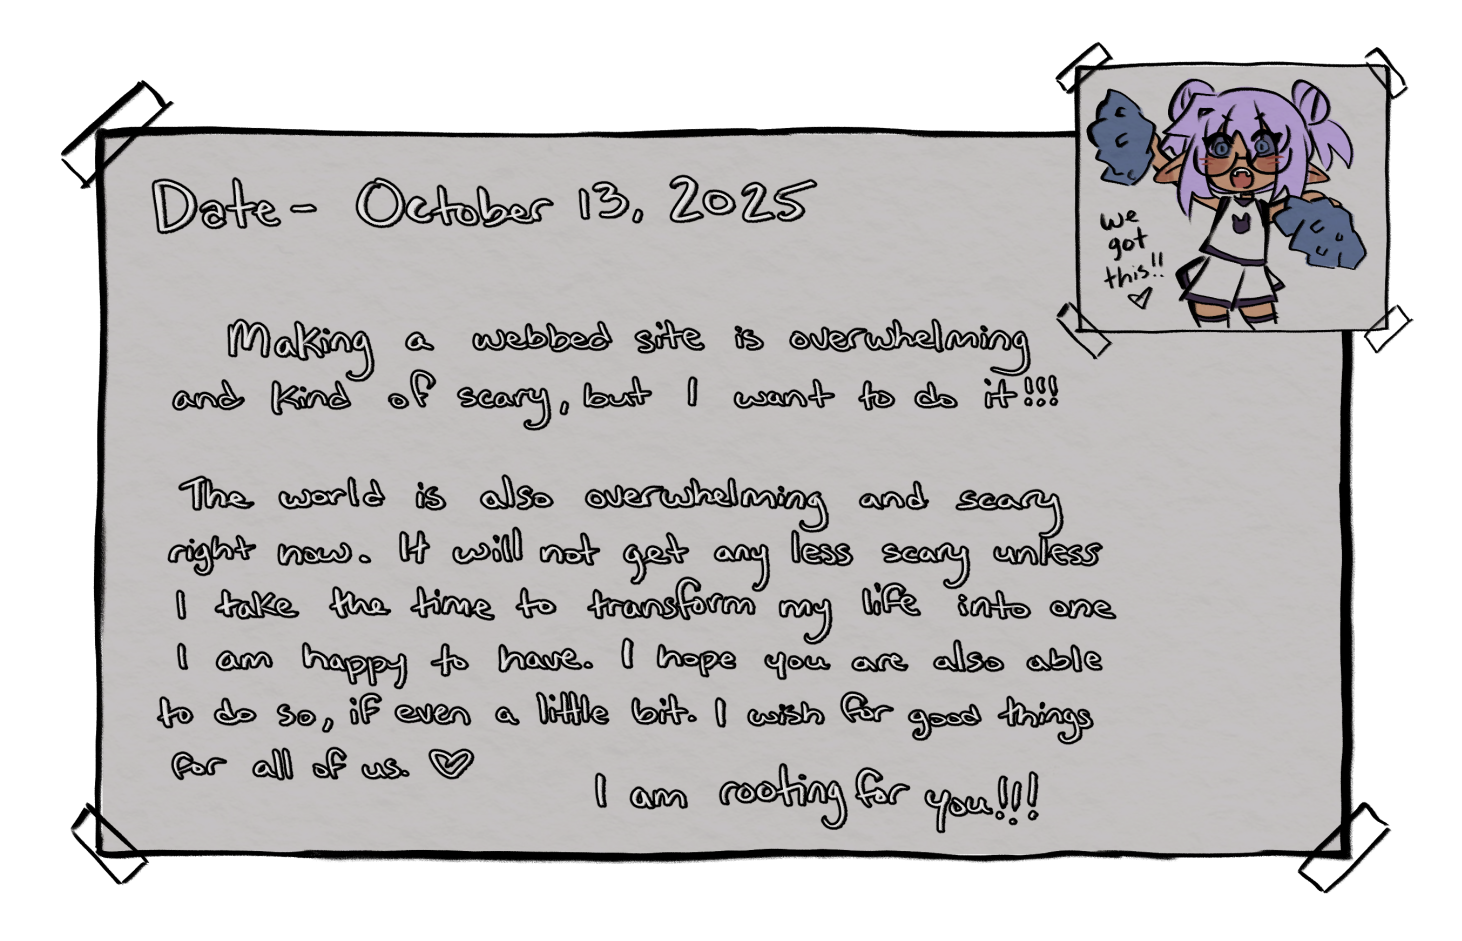 Date- October 13, 2025
we
got
this!!
Making a webbed site is overwhelming
and kind of scary, but I want to do it!!!
The world is also overwhelming and scary
right now. It will not get any less scary unless
I take the time to transform my life into one
I am happy to have. I hope you are also able
to do so, if even a little bit. I wish for good things
for all of us. ♡
I am rooting for you!!!